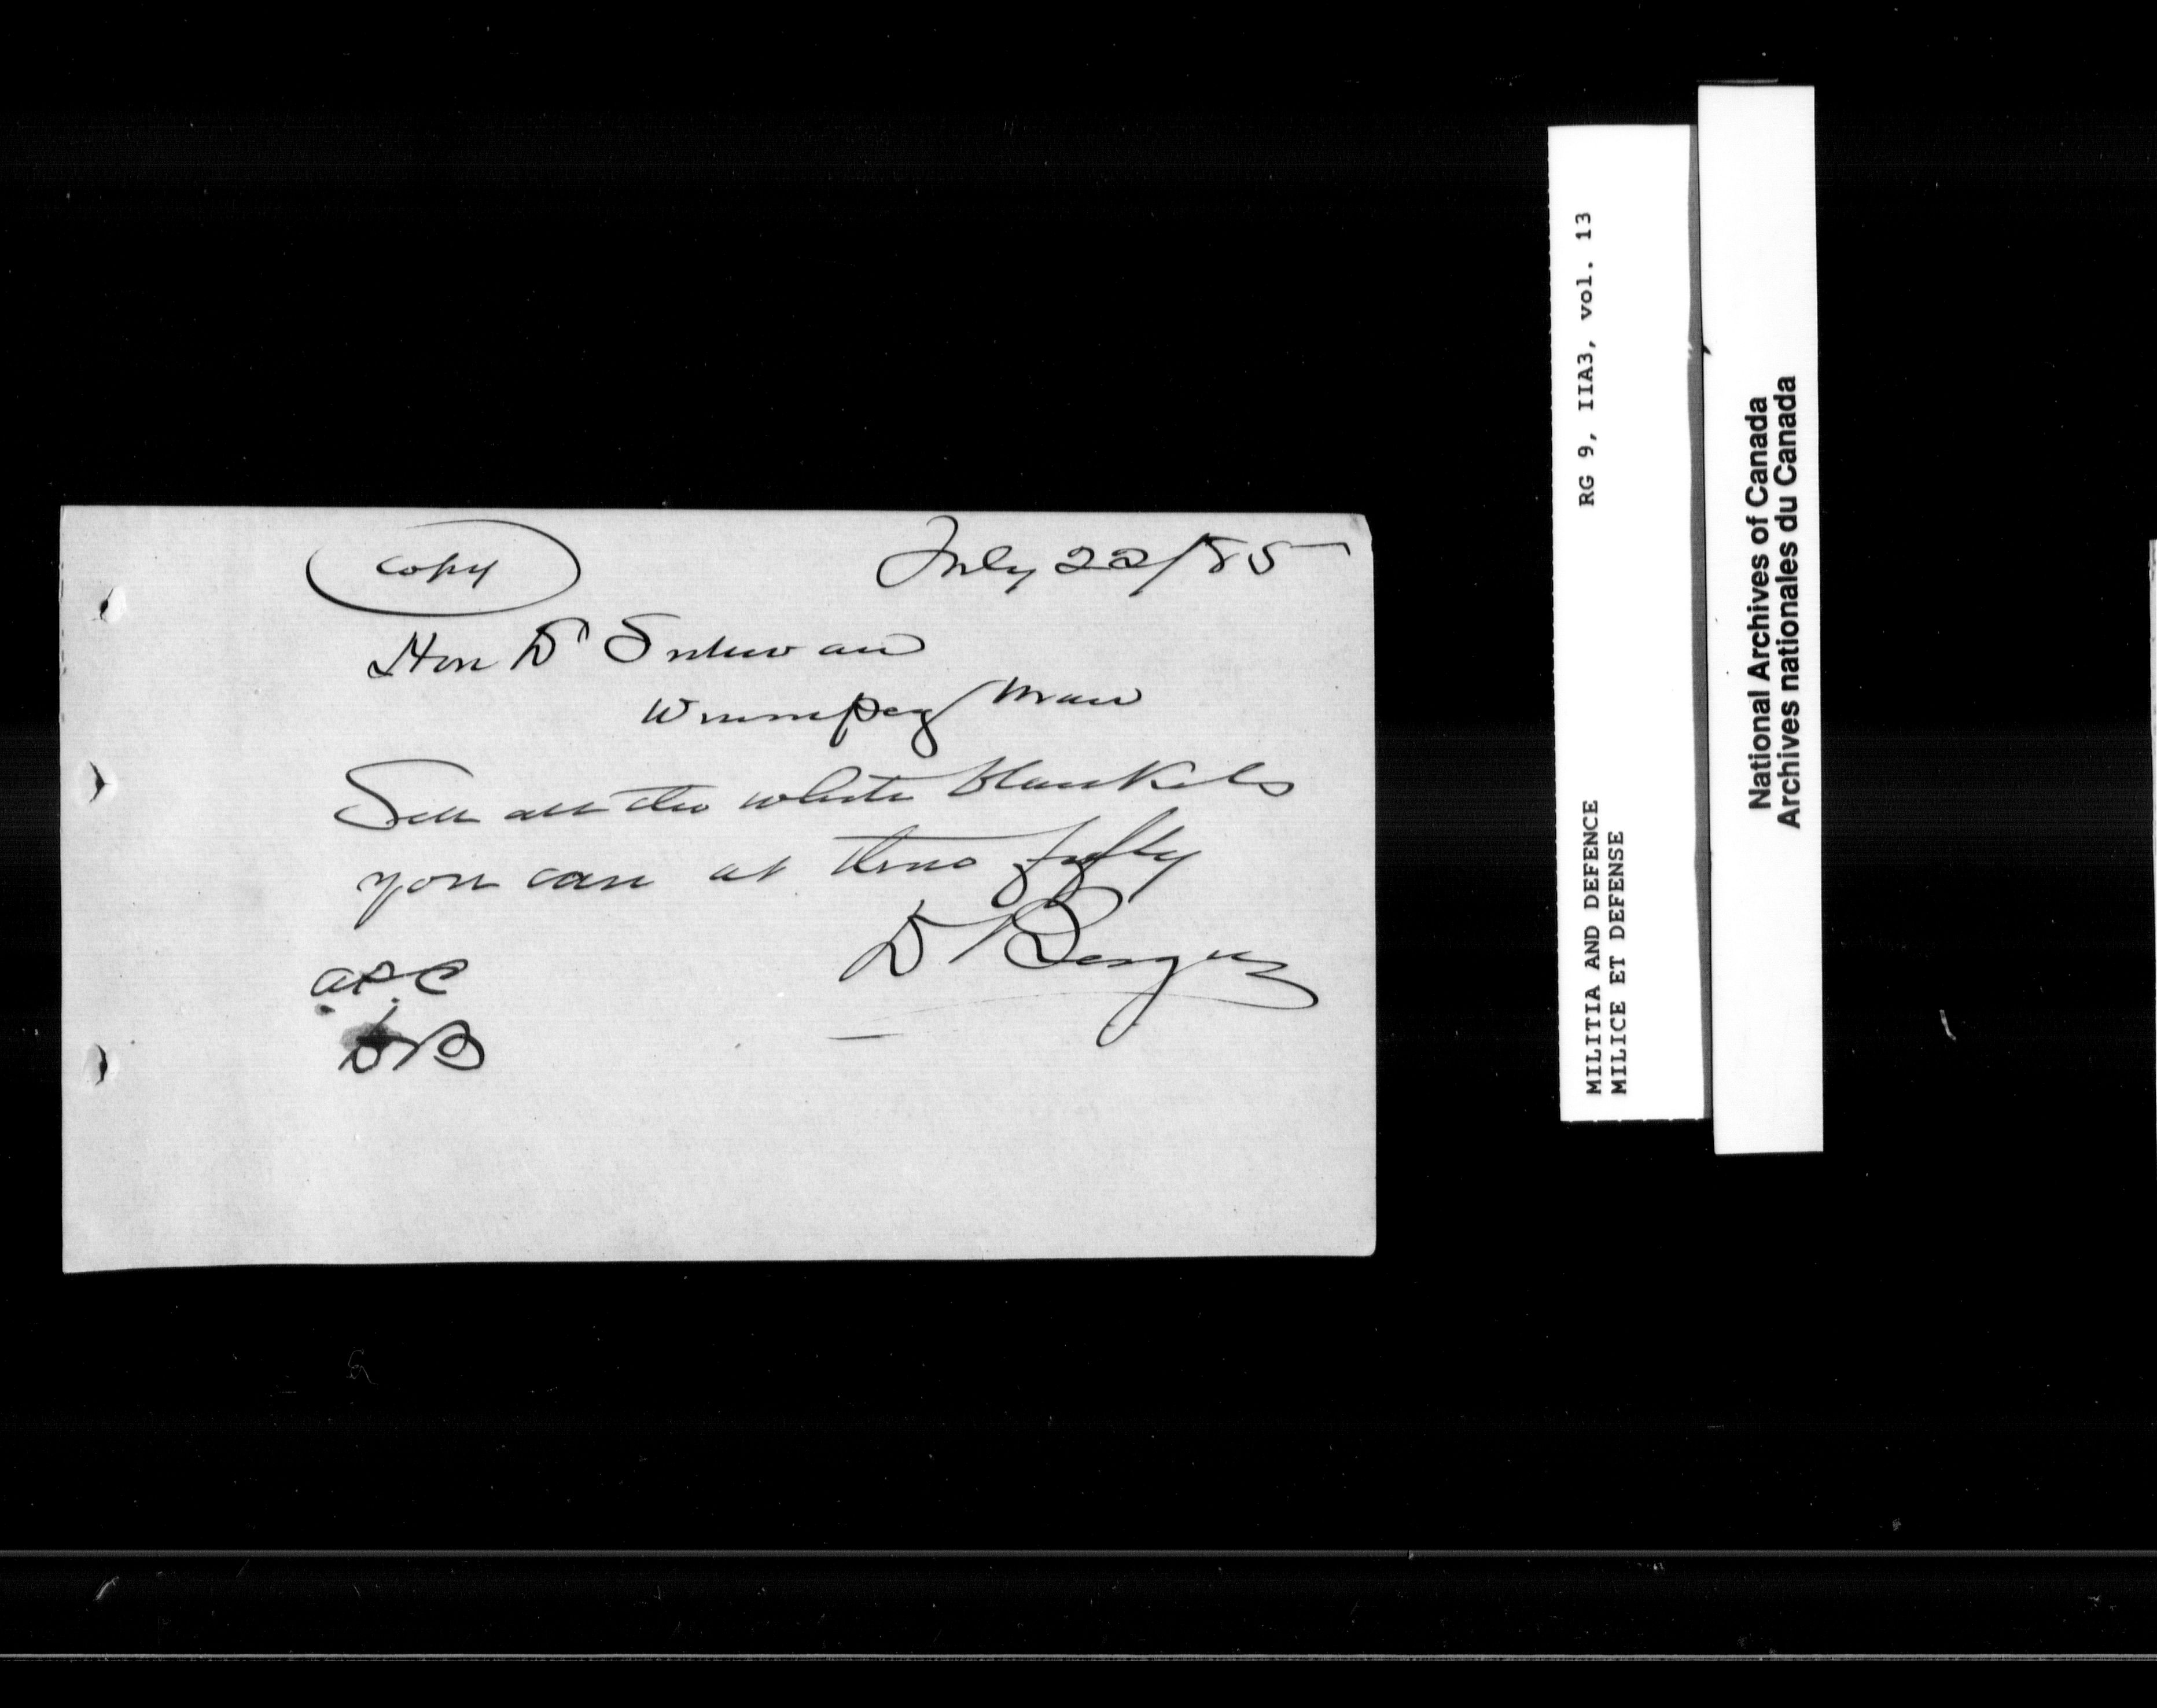 copy
July 22/85
Hon Dr Sullivan
Winnipeg Man
Sell all the white blankets
you can at three fifty
D Bergin
DB
MILITIA AND DEFENCE RG 9, IIA3, vol. 13
MILICE ET DEFENSE
National Archives of Canada
Archives nationales du Canada